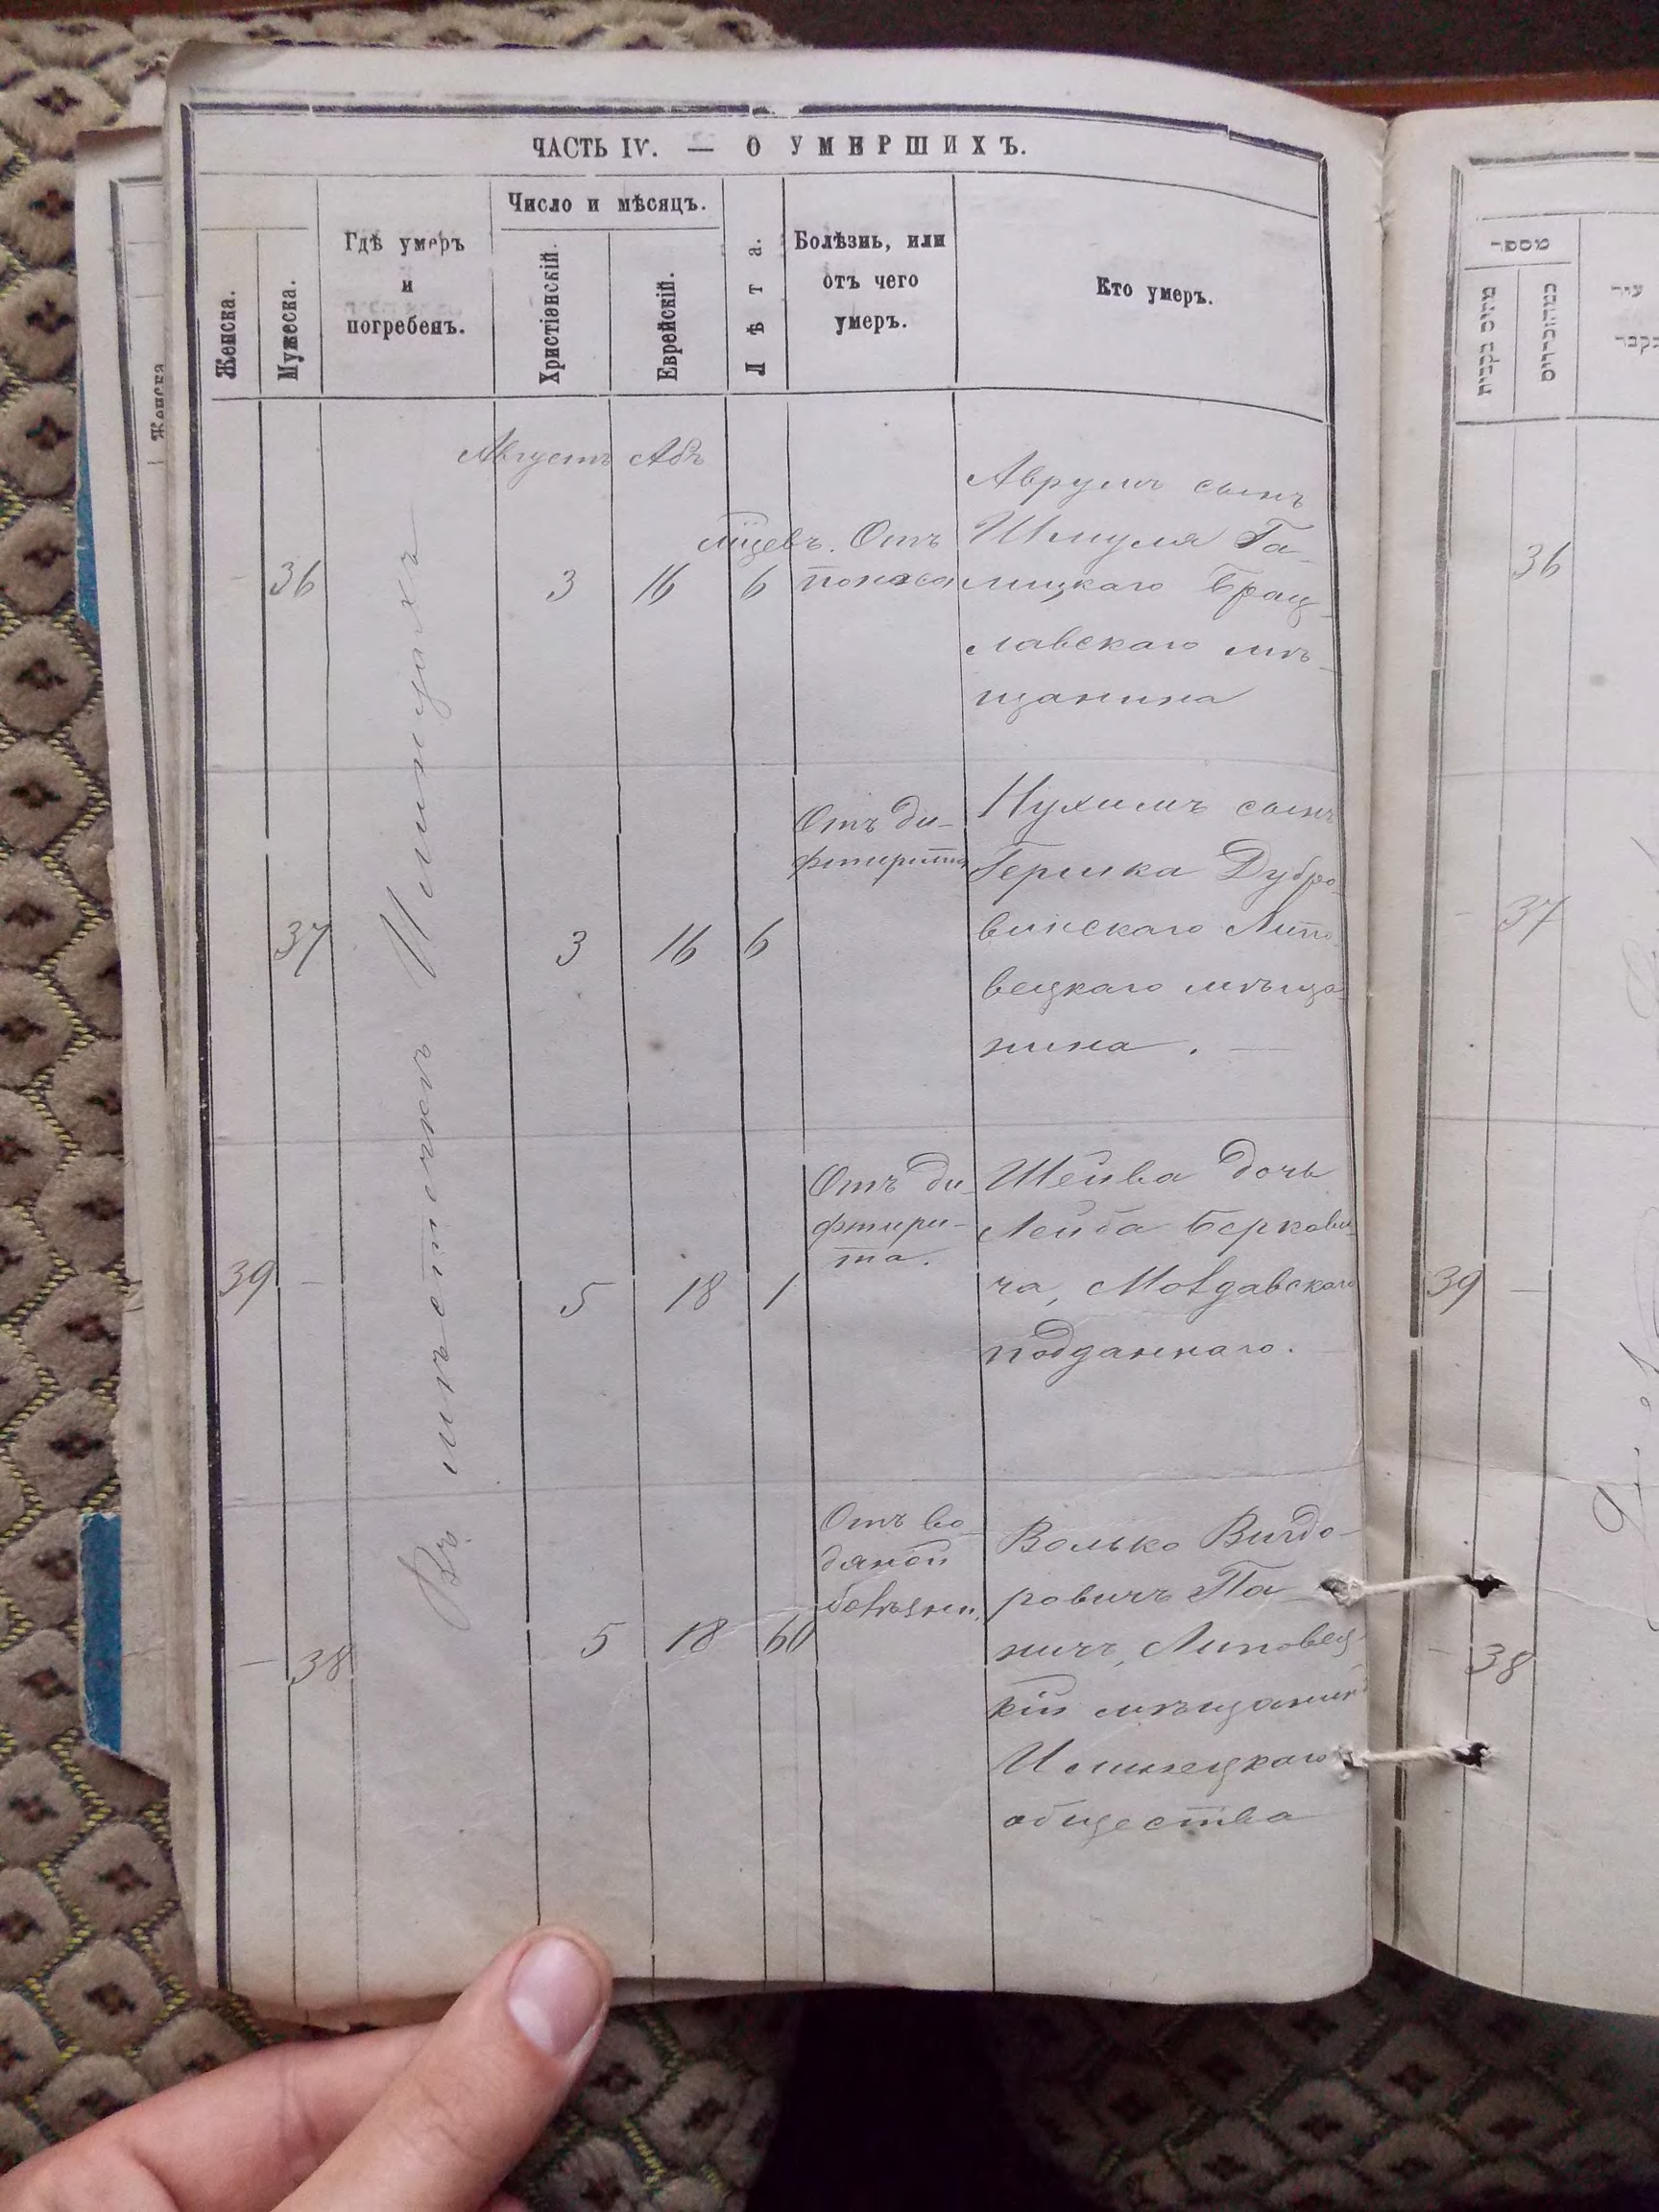 ЧАСТЬ IV. — О УМЕРШИХЪ.
Женска.
Мужеска.
Гдѣ умеръ
и
погребенъ.
Число и мѣсяцъ.
Христіянскій.
Еврейскій.
Лѣта.
Болѣзнь, или
отъ чего
умеръ.
Кто умеръ.
Въ мѣстечкѣ Илинцахъ
Августъ Абъ
- 36
3 16
6
Отъ
поноса
Аврумъ сынъ
Шмуля Га-
лицкаго Брац-
лавскаго мѣ-
щанина
37
3 16 6
Отъ ди-
фтирита
Нухимъ сынъ
Гершка Дубро-
винскаго Липо-
вецкаго мѣща-
нина. —
39 -
5 18 1
Отъ ди-
фтири-
та.
Шейва дочь
Лейба Беркови-
ча, Молдавскаго
подданнаго.
- 38
5 18 60
Отъ во-
дяной
болѣзни.
Волько Вигдо-
ровичъ Па-
ничъ, Липовец-
кій мѣщанинъ
Илинецкаго
общества
Женска
מספר
36
- 37
39 -
- 38